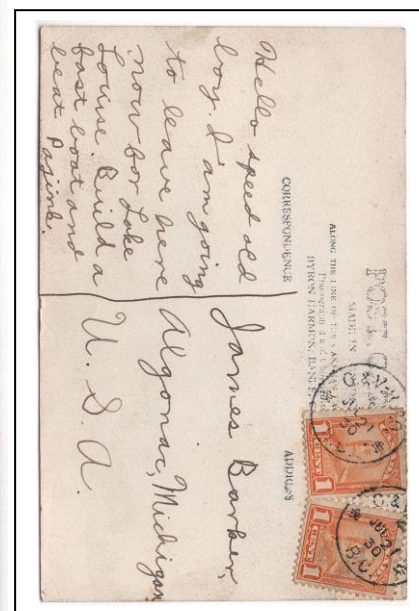 POST C
MADE IN
ALONG THE LINE OF THE CANADIAN
BYRON HARMON, BANFF
CORRESPONDENCE
ADDRESS
Hello speed old
boy. I am going
to leave here
now for Lake
Louise. Build a
fast boat and
beat
James Barker,
Algonac, Michigan
U. S. A.
1 CENT 1
1 CENT 1
30
B.C.
30